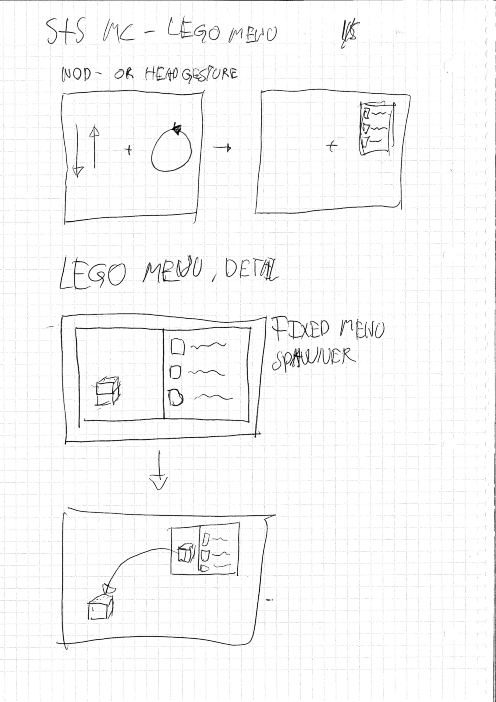 StS MC - LEGO MENU
NOD- OR HEADGESTURE
LEGO MENU, DETAIL
FIXED MENU
SPAWNER